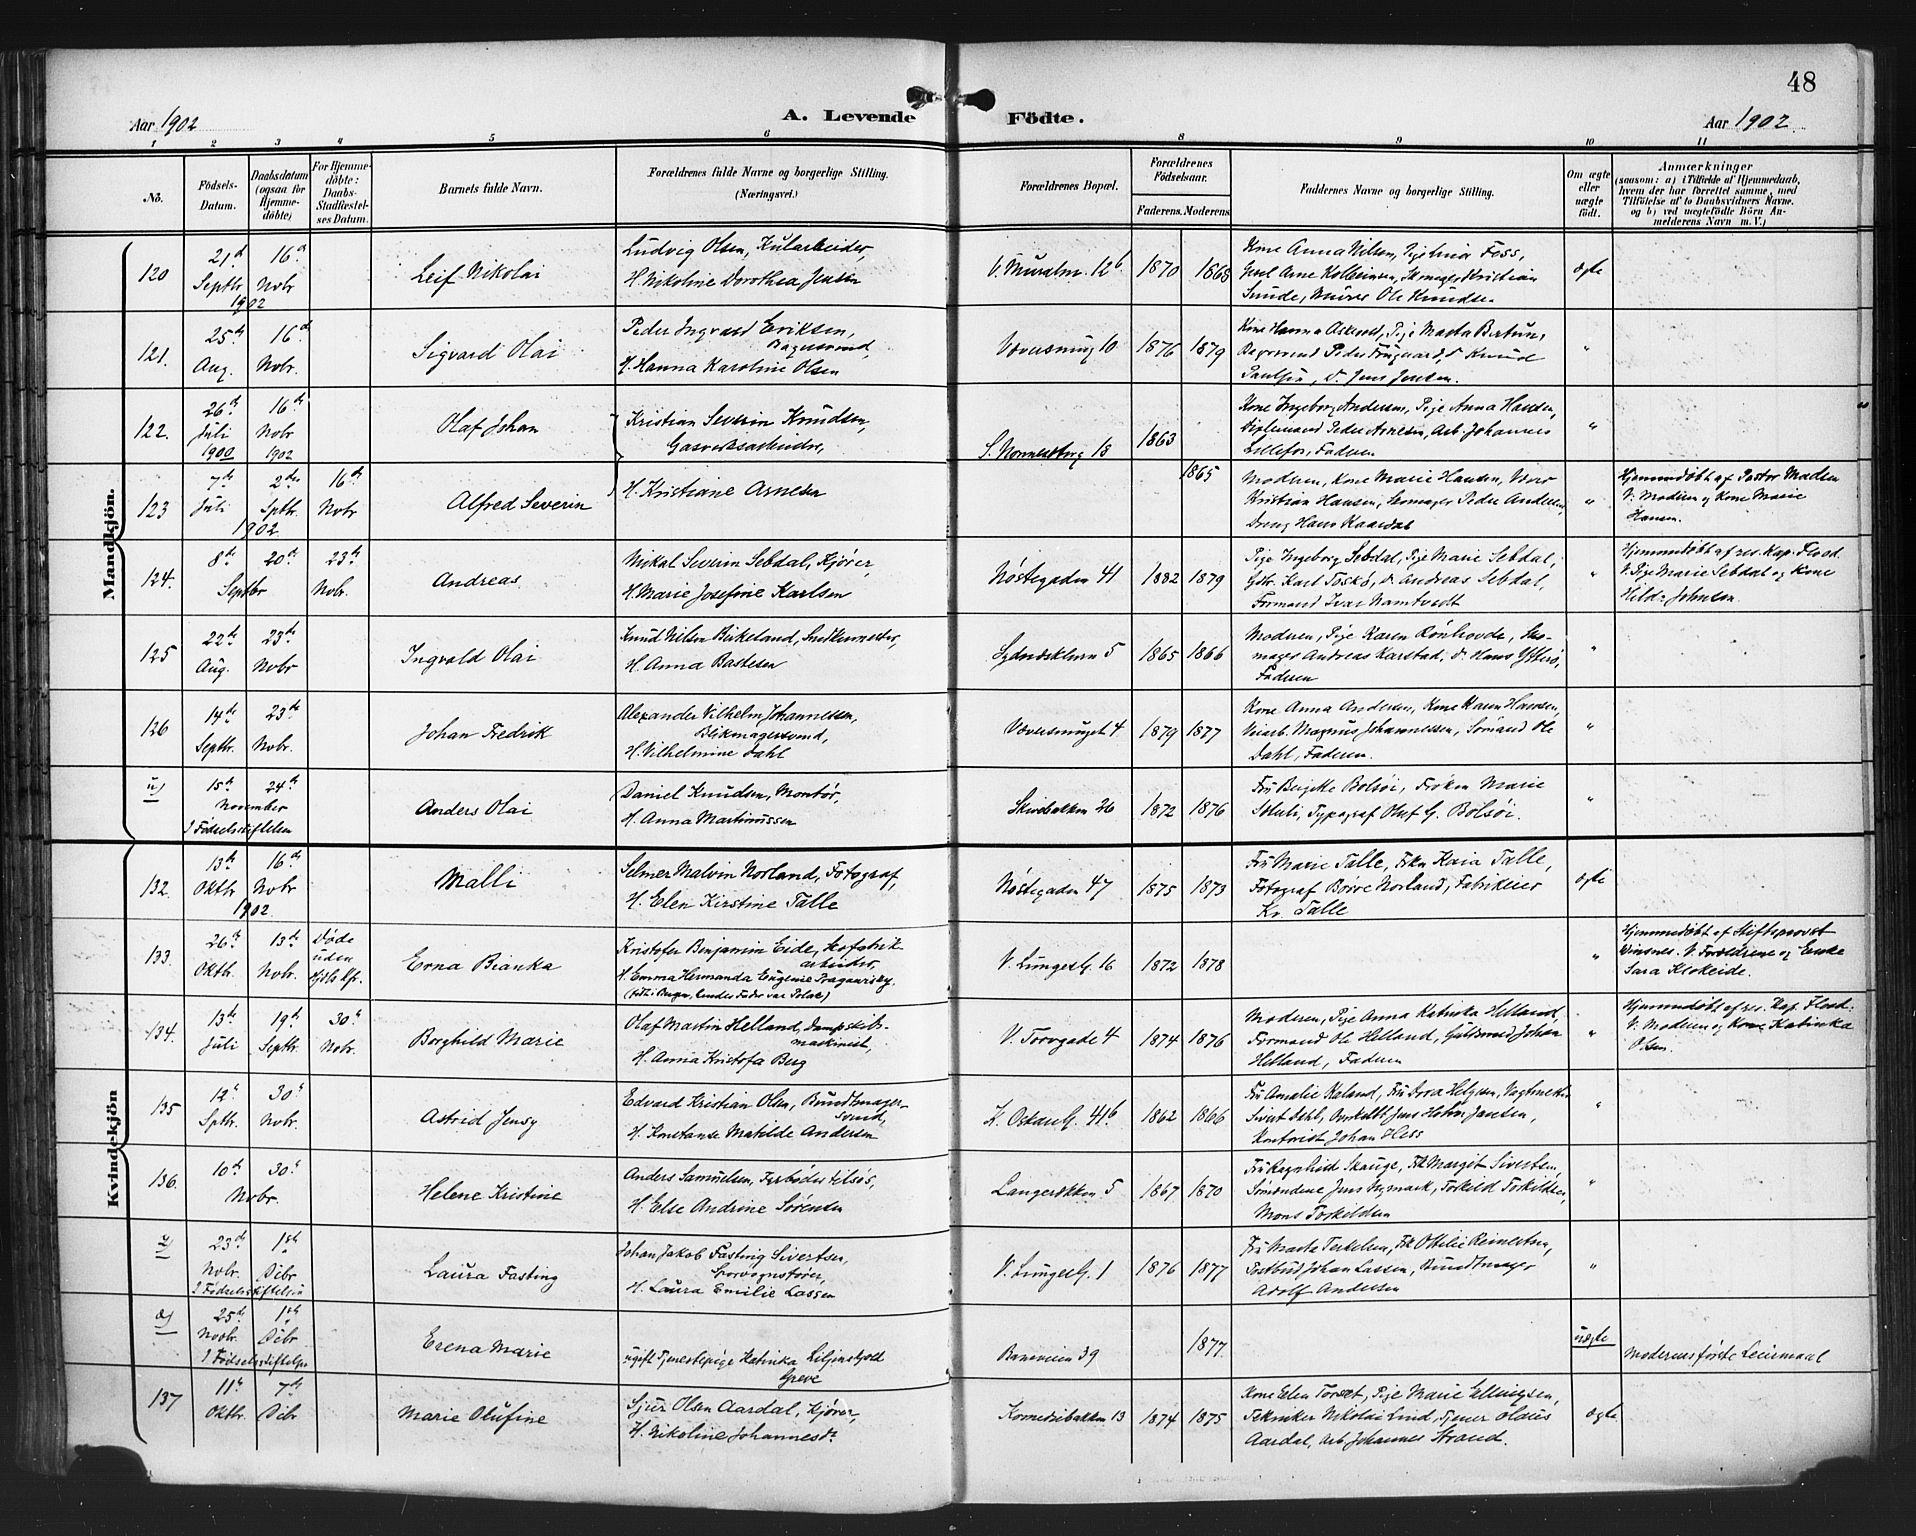 48
Aar 1902
A. Levende Födte.
Aar 1902
1 2 3 4 5 6 8 9 10 11
No.
Födsels-Datum.
Daabsdatum (ogsaa for Hjemme-döbte)
For Hjemme-döbte: Daabs-Stadfæstel-ses Datum.
Barnets fulde Navn.
Forældrenes fulde Navne og borgerlige Stilling. (Næringsvei.)
Forældrenes Bopæl.
Forældrenes Födselsaar.
Faderens. Moderens
Faddernes Navne og borgerlige Stilling.
Om ægte eller uægte födt.
Anmærkninger
(saasom: a) i Tilfælde af Hjemmedaab, hvem der har forrettet samme, med Tilföielse af to Daabsvidners Navne. og b) ved uægtefödte Börn An-melderens Navn m.V.)
Mandkjön.
120
21de Septbr. 16de Novbr 1902
Leif Nikolai
Ludvig Olsen, Kularbeider,
H. Nikoline Dorothea Jensen
V. Muralm. 12b 1870 1868
Kone Anna Nilsen, Pige Lina Foss,
Gest Arne Kolbeinsen, Skomager Kristian
Sunde, Murer Ole Knudsen
ægte
121.
25de Aug. 16de Novbr.
Sigvard Olai
Peder Ingvard Eriksen,
Bagersvend,
H. Hanna Karoline Olsen
Væversmug 10 1876 1879
Kone Hanna, Pige Marta Bertun,
Bagersvend Peder, d. Knud
Paulsen, d. Jens Jensen.
"
122.
26de Juli 1900 16de Novbr 1902
Olaf Johan
Kristian Severin Knudsen,
Gasverksarbeider,
S. Normesborg 18 1863
Kone Ingeborg Andersen, Pige Anna Hansen,
Peder Arnesen, Arb. Johannes
Lillefos, Faderen
"
123
7de Juli 2den Septbr. 1902 16de Novbr
Alfred Severin
H. Kristiane Arnesen
1865
Moderen, Kone Marie Hansen,
Kristian Hansen, Skomager Peder Andersen,
Dreng Hans Kaardal
"
Hjemmedöbt af Pastor Madsen
V: Modren og Kone Marie
Hansen.
124.
8de 20de Septbr 23de Novbr.
Andreas
Mikal Severin Sebdal, Kjører,
H. Marie Josefine Karlsen
Nöstegaden 41 1882 1879
Pige Ingeborg Sebdal, Pige Marie Sebdal,
Gstr. Karl Toskø, d. Andreas Sebdal,
Formand Ivar Namtvedt
"
Hjemmedöbt af res. Kap. Flood
V. Pige Marie Sebdal og Kone
Hilda Johnsen.
125
22de Aug. 23de Novbr
Ingvald Olai
Knud Nilsen Birkeland, Snedkermester,
H. Anna Bastesen
Sydneskleven 5 1865 1866
Moderen, Pige Karen Rønhovde, Sko-
mager Andreas Karstad, d. Hans Ytterö,
Faderen
"
126
14de Septbr. 23de Novbr.
Johan Fredrik
Alexander Vilhelm Johannesen,
Blikmagersvend,
H. Vilhelmine Dahl
Væversmuget 4 1879 1877
Kone Anna Andersen, Kone Karen Hansen,
Veiarb. Magnus Johannessen, Sömand Ole
Dahl, Faderen.
"
15de 24de November
I Födselsstiftelsen
Anders Olai
Daniel Knudsen, Montör,
H. Anna Martinussen
Skivebakken 26 1872 1876
Fru Birgitte Bolsöi, Fröken Marie
Schuli, Typograf Oluf G. Bolsöi.
"
Kvindekjön
132.
13de Oktbr 16de Novbr 1902
Malli
Selmer Malvin Norland, Fotograf,
H. Elen Kirstine Talle
Nöstegaden 47 1875 1873
Fru Marie Talle, Frkn Kaia Talle,
Fotograf Börre Norland, Fabrikeier
Kr. Talle
ægte
133.
26de Oktbr. 13de Novbr. Döde uden
Erna Bianka
Kristofer Benjamin Eide, Skofabrik-
arbeider,
H. Emma Hermanda Eugenie Pragaursky.
(Födt i Bergen, hendes Fader var Polak)
V. Lungeg. 16 1872 1878
"
Hjemmedöbt af Stiftsprovst
V. Forældrene og Enke
Sara Klokeide.
134.
13de Juli 19de Septbr. 30te Novbr.
Borghild Marie
Olaf Martin Helland, Dampskibs-
maskinist,
H. Anna Kristofa Berg
V. Torvgade 4 1874 1876
Moderen, Pige Anna Katinka Helland,
Formand Ole Helland, Guldsmed Johan
Helland, Faderen
"
Hjemmedöbt af res. Kap. Flood:
V: Moderen og Kone Katinka
Olsen.
135
12te Sptbr. 30te Novbr.
Astrid Jensy
Edvard Kristian Olsen, Bundtmager-
svend,
H. Konstanse Matilde Andersen
K. Oskarsg. 41b 1862 1866
Fru Amalie Kaland, Fru Dora Helgesen, Vagtmester
Sivert Dahl, Jens Holm Jansen,
Kontorist Johan Hess
"
136.
10de 30te Novbr.
Helene Kristine
Anders Samuelsen, Fyrböder tilsös,
H. Else Andrine Sörensen
Langerækken 5 1867 1870
Fru Ragnhild Skauge, Frk Margit Sivertsen,
Sömændene Jens Nymark, Torkild Torkildsen,
Mons Torkildsen
"
23de Novbr. 1ste Debr
I Födselsstiftelsen
Laura Fasting
Johan Jakob Fasting Sivertsen,
H. Laura Emilie Lassen
V. Lungeg. 1 1876 1877
Fru Marta Terkelsen, Frk Ottilie Reinertsen,
Postbud Johan Lassen, Bundtmager
Adolf Andersen
"
25de Novbr. 1ste Debr
I Födselsstiftelsen
Erena Marie
ugift Tjenestepige Katinka Liljenskjold
Greve
Baneveien 39 1877.
uægte
Moderens förste Leiermaal
137
11te Oktbr. 7de Debr
Marie Olufine
Sjur Olsen Aardal, Kjører,
H. Nikoline Johannesdr.
Komediebakken 13 1874 1875
Kone Elen Torset, Pige Marie Ellingsen,
Tekniker Nikolai Lind, Tjener Olaus
Aardal, Arb. Johannes Strand.
ægte